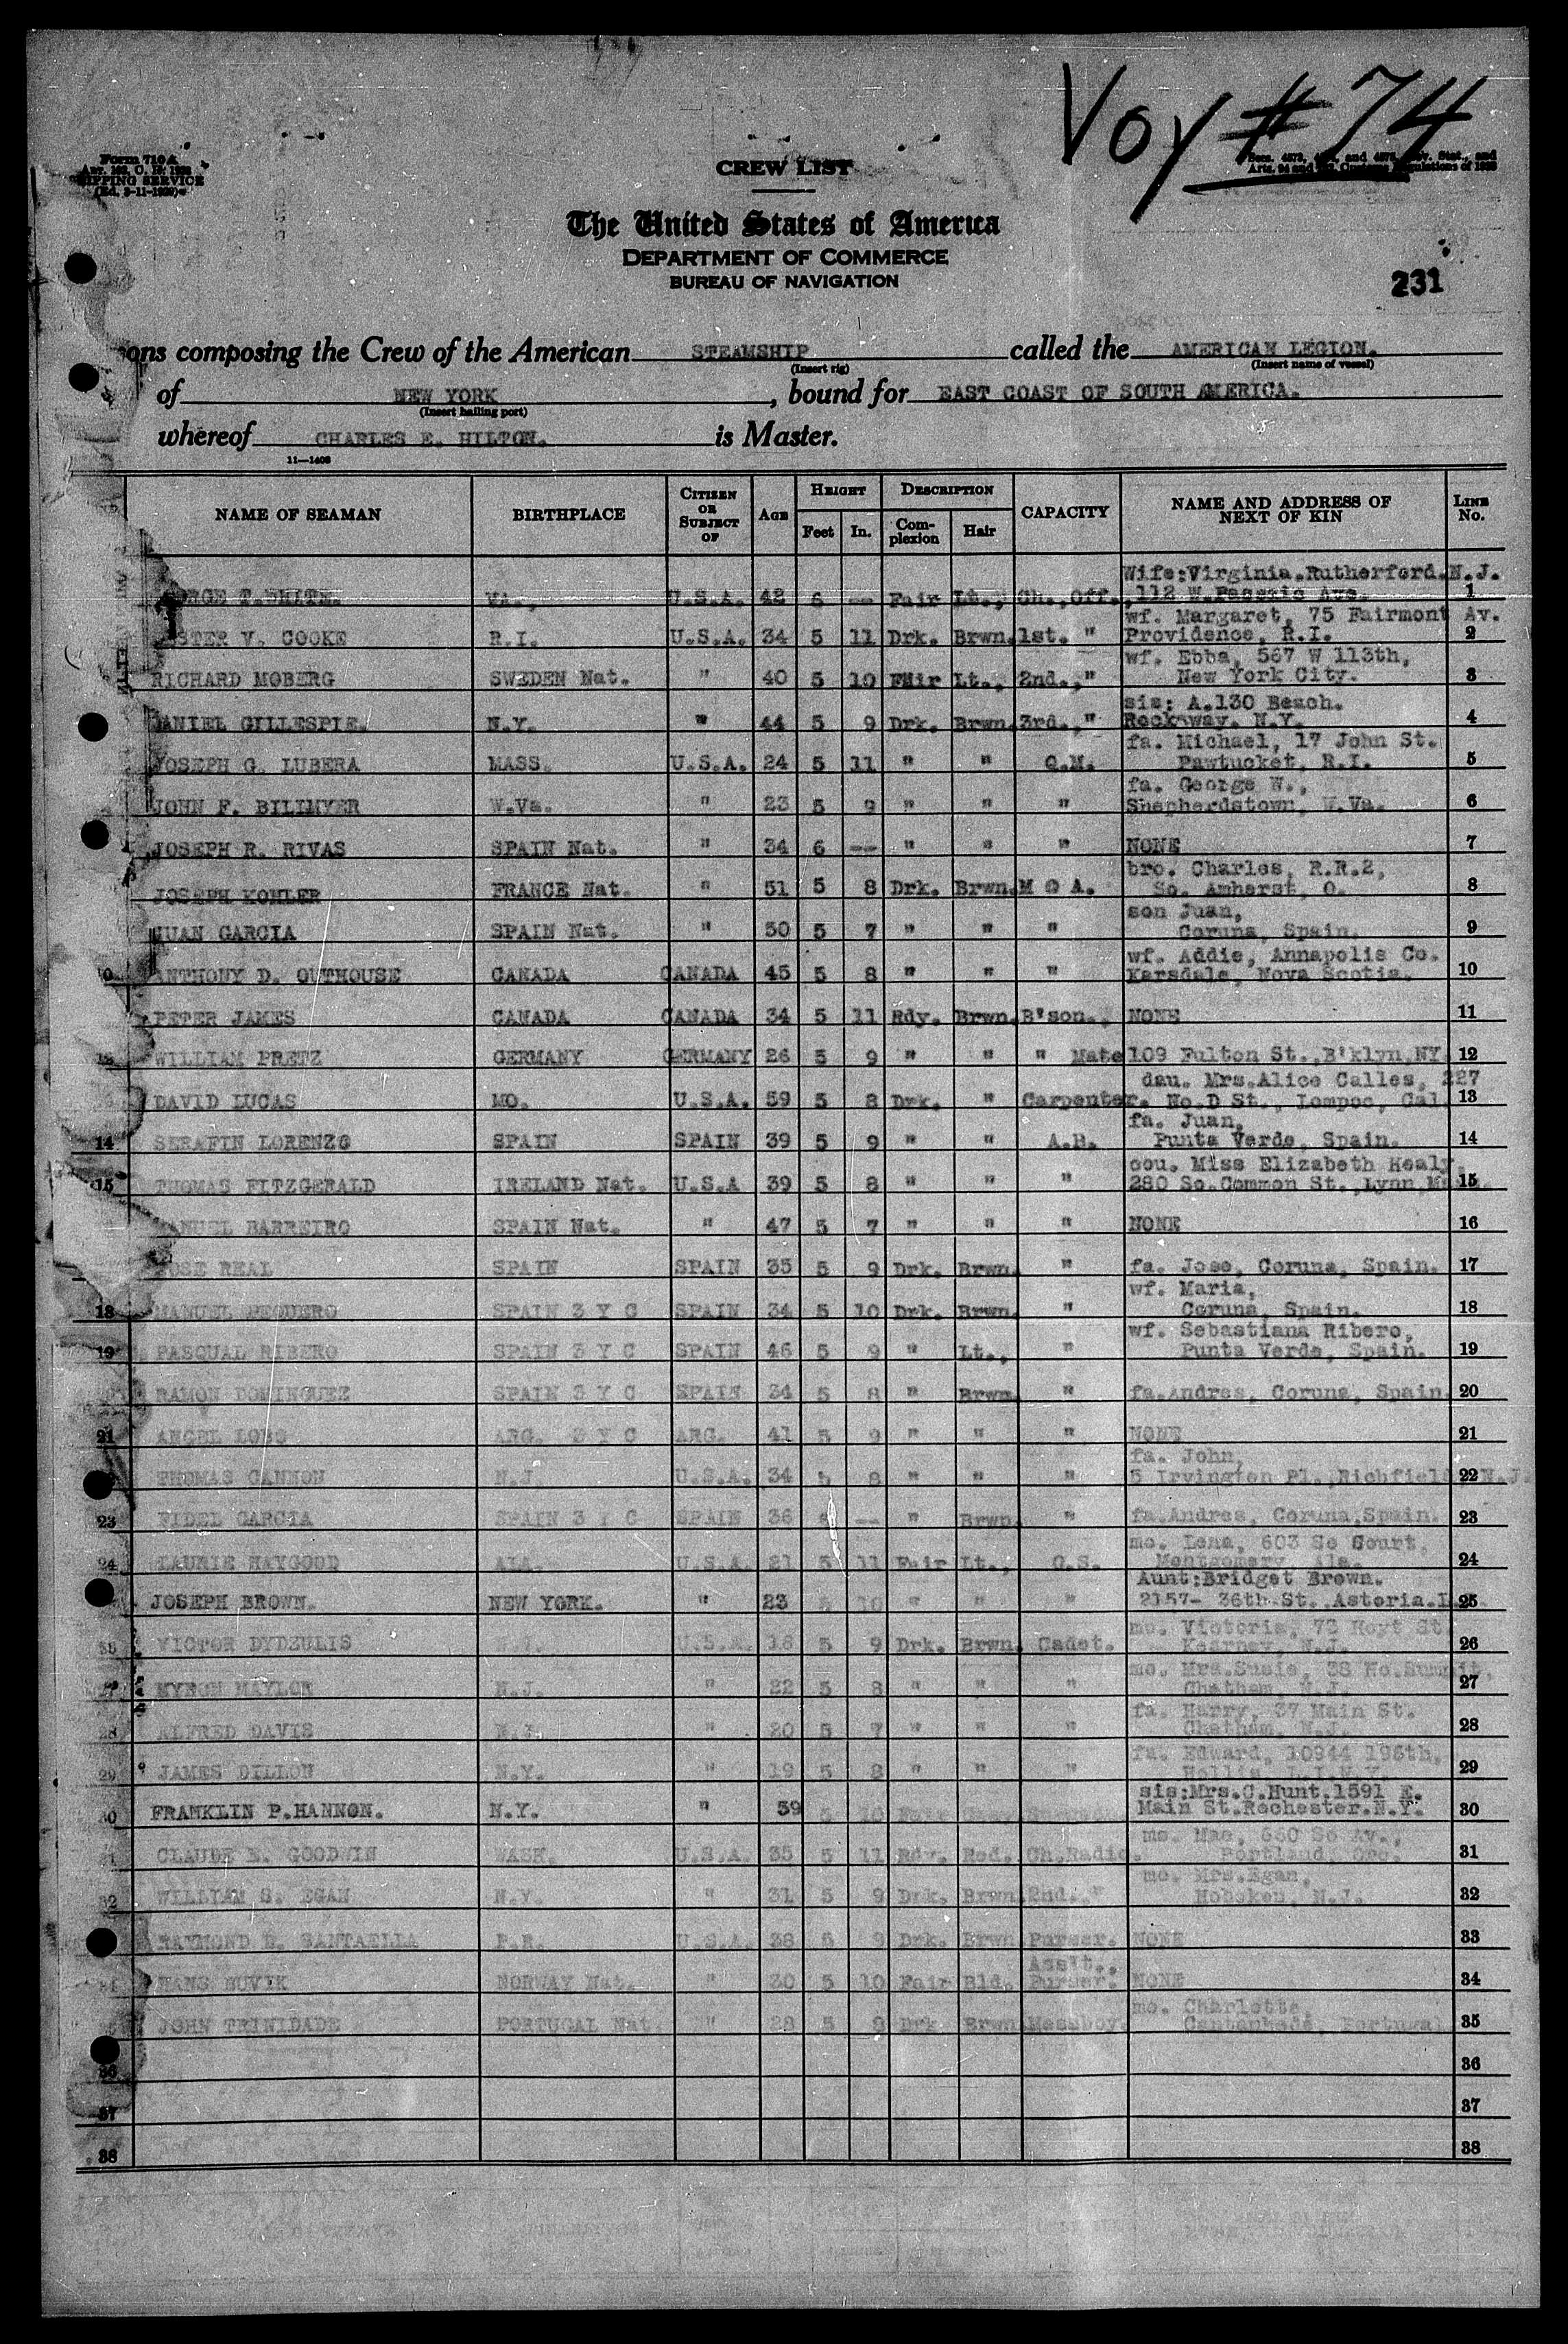 Voy # 74
Form 710 A
SHIPPING SERVICE
CREW LIST
The United States of America
DEPARTMENT OF COMMERCE
BUREAU OF NAVIGATION
231
ons composing the Crew of the American STEAMSHIP called the AMERICAN LEGION.
(Insert rig) (Insert name of vessel)
of NEW YORK, bound for EAST COAST OF SOUTH AMERICA.
(Insert hailing port)
whereof CHARLES E. HILTON. is Master.
11—1408
NAME OF SEAMAN BIRTHPLACE CITIZEN OR SUBJECT OF AGE HEIGHT Feet In. DESCRIPTION Complexion Hair CAPACITY NAME AND ADDRESS OF NEXT OF KIN LINE No.
Wife:Virginia.Rutherford.N.J.
ORGE T.WHITE. VA., U.S.A. 42 6 -- Fair Lt., Ch.,Off., 112 W.Passaic Ave. 1
wf. Margaret, 75 Fairmont Av.
STER V. COOKE R.I. U.S.A. 34 5 11 Drk. Brwn. 1st. " Providence, R.I. 2
wf. Ebba, 567 W 113th,
RICHARD MOBERG SWEDEN Nat. " 40 5 10 FHir Lt., 2nd.," New York City. 3
sis: A.130 Beach.
DANIEL GILLESPIE. N.Y. " 44 5 9 Drk. Brwn. 3rd.," Rockaway. N.Y. 4
fa. Michael, 17 John St.
JOSEPH G. LUBERA MASS. U.S.A. 24 5 11 " " Q.M. Pawtucket, R.I. 5
fa. George W.,
JOHN F. BILLMYER W.Va. " 23 5 9 " " " Shepherdstown, W.Va. 6
JOSEPH R. RIVAS SPAIN Nat. " 34 6 -- " " " NONE 7
bro. Charles, R.R.2,
JOSEPH KOHLER FRANCE Nat. " 51 5 8 Drk. Brwn. M @ A. So. Amherst, O. 8
son Juan,
JUAN GARCIA SPAIN Nat. " 50 5 7 " " " Coruna, Spain. 9
wf. Addie, Annapolis Co.
ANTHONY D. OUTHOUSE CANADA CANADA 45 5 8 " " " Karsdale, Nova Scotia. 10
PETER JAMES CANADA CANADA 34 5 11 Rdy. Brwn. B'son. NONE 11
WILLIAM PRETZ GERMANY GERMANY 26 5 9 " " " Mate 109 Fulton St.,B'klyn,NY 12
dau. Mrs.Alice Calles, 227
DAVID LUCAS MO. U.S.A. 59 5 8 Drk. " Carpenter. No.D St., Lompoc, Cal. 13
fa. Juan,
14 SERAFIN LORENZO SPAIN SPAIN 39 5 9 " " A.B. Punta Verde, Spain. 14
cou. Miss Elizabeth Healy,
15 THOMAS FITZGERALD IRELAND Nat. U.S.A 39 5 8 " " " 280 So.Common St.,Lynn, 15
ANUEL BARREIRO SPAIN Nat. " 47 5 7 " " " NONE 16
JOSE REAL SPAIN SPAIN 35 5 9 Drk. Brwn. " fa. Jose, Coruna, Spain. 17
wf. Maria,
18 MANUEL PEQUERO SPAIN 3 Y C SPAIN 34 5 10 Drk. Brwn. " Coruna, Spain. 18
wf. Sebastiana Ribero,
19 PASQUAL RIBERO SPAIN 3 Y C SPAIN 46 5 9 " Lt., " Punta Verde, Spain. 19
RAMON DOMINGUEZ SPAIN 3 Y C SPAIN 34 5 8 " Brwn. " fa.Andres, Coruna, Spain. 20
21 ANGEL LOBO ARG. 3 Y C ARG. 41 5 9 " " " NONE 21
fa. John,
THOMAS CANNON N.J. U.S.A. 34 5 8 " " " 5 Irvington Pl.,Richfield, N.J. 22
23 FIDEL GARCIA SPAIN 3 Y C SPAIN 36 -- " Brwn. " fa.Andres, Coruna,Spain. 23
mo. Lena, 603 So Court,
24 LAURIE HAYGOOD ALA. U.S.A. 21 5 11 Fair Lt., O.S. Montgomery, Ala. 24
Aunt:Bridget Brown.
JOSEPH BROWN. NEW YORK. " 23 5 10 " " " 2157- 36th St. Astoria. 25
mo. Victoria, 73 Hoyt St.
VICTOR DYDZULIS N.J. U.S.A. 18 5 9 Drk. Brwn. Cadet. Kearney, N.J. 26
mo. Mrs.Susie, 38 No.Summit,
MYRON NAYLOR N.J. " 22 5 8 " " " Chatham, N.J. 27
fa. Harry, 37 Main St.
28 ALFRED DAVIS N.J. " 20 5 7 " " " Chatham, N.J. 28
fa. Edward, 10944 196th,
29 JAMES DILLON N.Y. " 19 5 8 " " " Hollis, L.I.N.Y. 29
sis:Mrs.C.Hunt.1591 E.
FRANKLIN P.HANNON. N.Y. " 39 5 10 Main St.Rochester.N.Y. 30
mo. Mae, 660 So Av.,
CLAUDE E. GOODWIN WASH. U.S.A. 35 5 11 Rdy. Red. Ch.Radio. Portland, Ore. 31
mo. Mrs.Egan,
32 WILLIAM S. EGAN N.Y. " 31 5 9 Drk. Brwn. 2nd." Hoboken, N.J. 32
RAYMOND E. SANTAELLA P.R. U.S.A. 38 5 9 Drk. Brwn Purser. NONE 33
HANS NUVIK NORWAY Nat. " 30 5 10 Fair Bld. Asst., Purser. NONE 34
mo. Charlotte,
JOHN TRINIDADE PORTUGAL Nat " 28 5 9 Drk Brwn Messboy. Cantanhede, Portugal 35
36 36
37 37
38 38